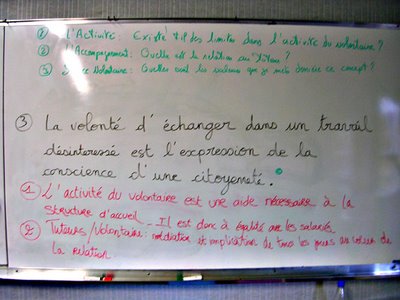 ① L'Activité : Existe t'il des limites dans l'activité du volontaire ?
② L'Accompagnement : Quelle est la relation au Tuteur ?
③ Volontaire : Quelles sont les valeurs que je mets derrière ce concept ?
③ La volonté d'échanger dans un travail
désintéressé est l'expression de la
conscience d'une citoyenneté.
① L'activité du volontaire est une aide nécessaire à la
structure d'accueil _ Il est donc à égalité avec les salariés
② Tuteurs/Volontaire : médiation et implication de tous les
la relation